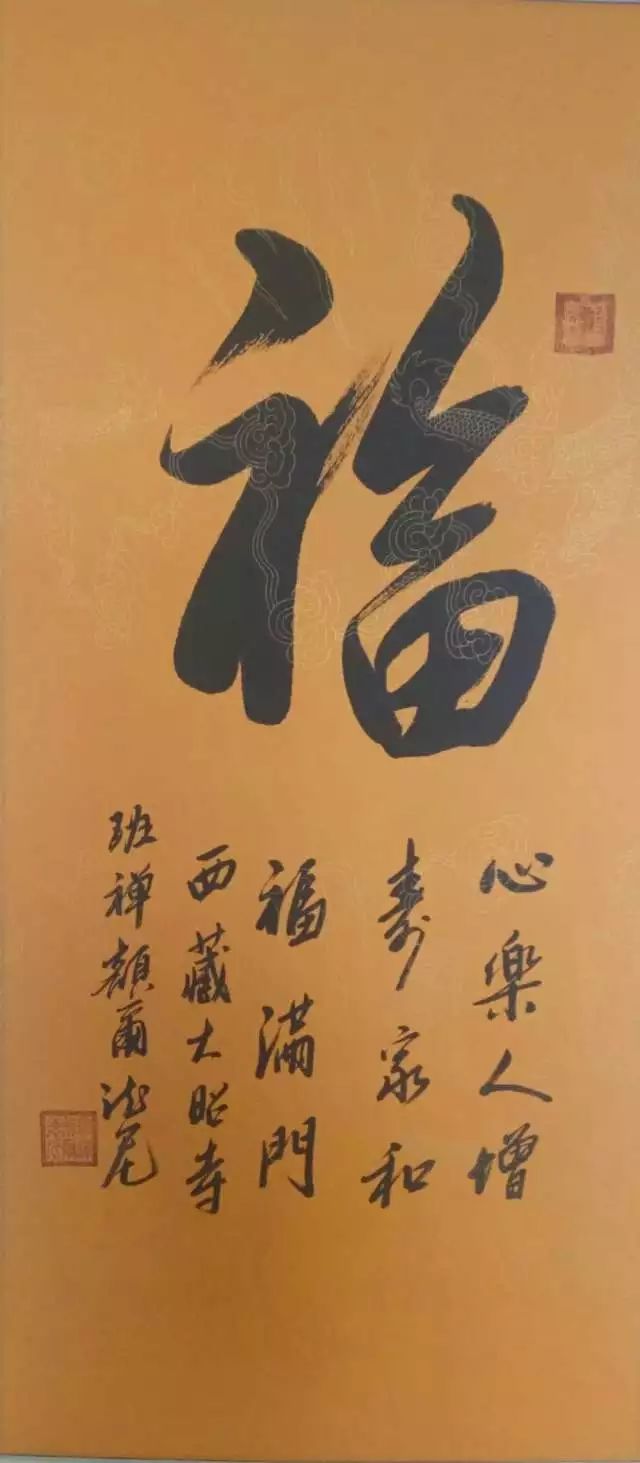 福
心樂人增
壽家和
福滿門
西藏大昭寺
班禅額爾德尼